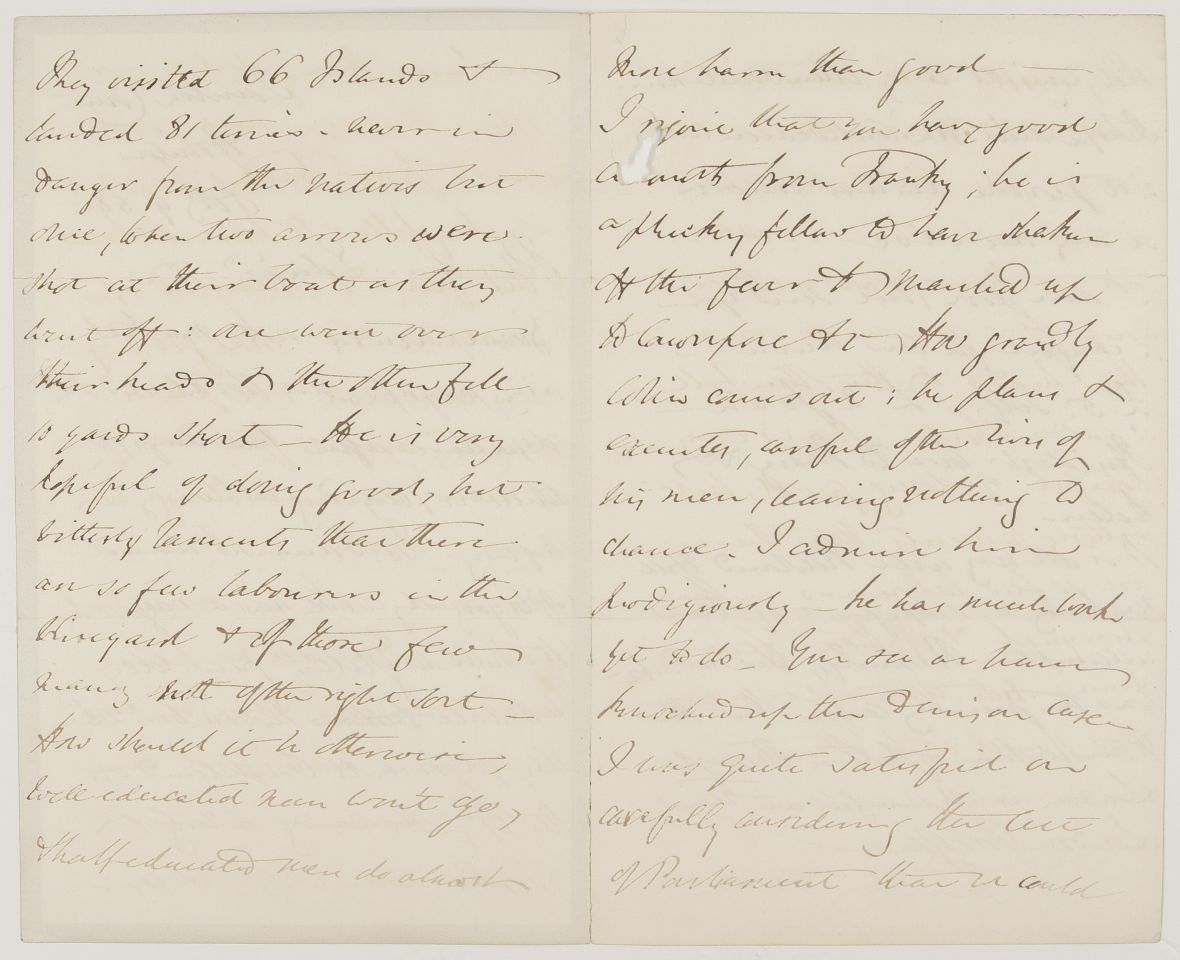 They visited 66 Islands &
landed 81 times - never in
danger from the natives but
once, when two arrows were
shot at their boat as they
went off: one went over
their heads & the other fell
10 yards short - He is very
hopeful of doing good, but
bitterly laments that there
are so few labourers in the
Vineyard & of those few
many not of the right sort -
How should it be otherwise,
Well educated men won't go,
& half educated men do almost
more harm than good -
I rejoice that you have good
accounts from Franky; he is
a plucky fellow to have shaken
off the fever & marched up
to Cawnpore &c How grandly
Colin comes out; he plans &
executes, careful of the lives of
his men, leaving nothing to
chance. I admire him
prodigiously - he has much work
yet to do - You see we have
knocked up the Denison case
I was quite satisfied on
carefully considering the act
of Parliament that we could